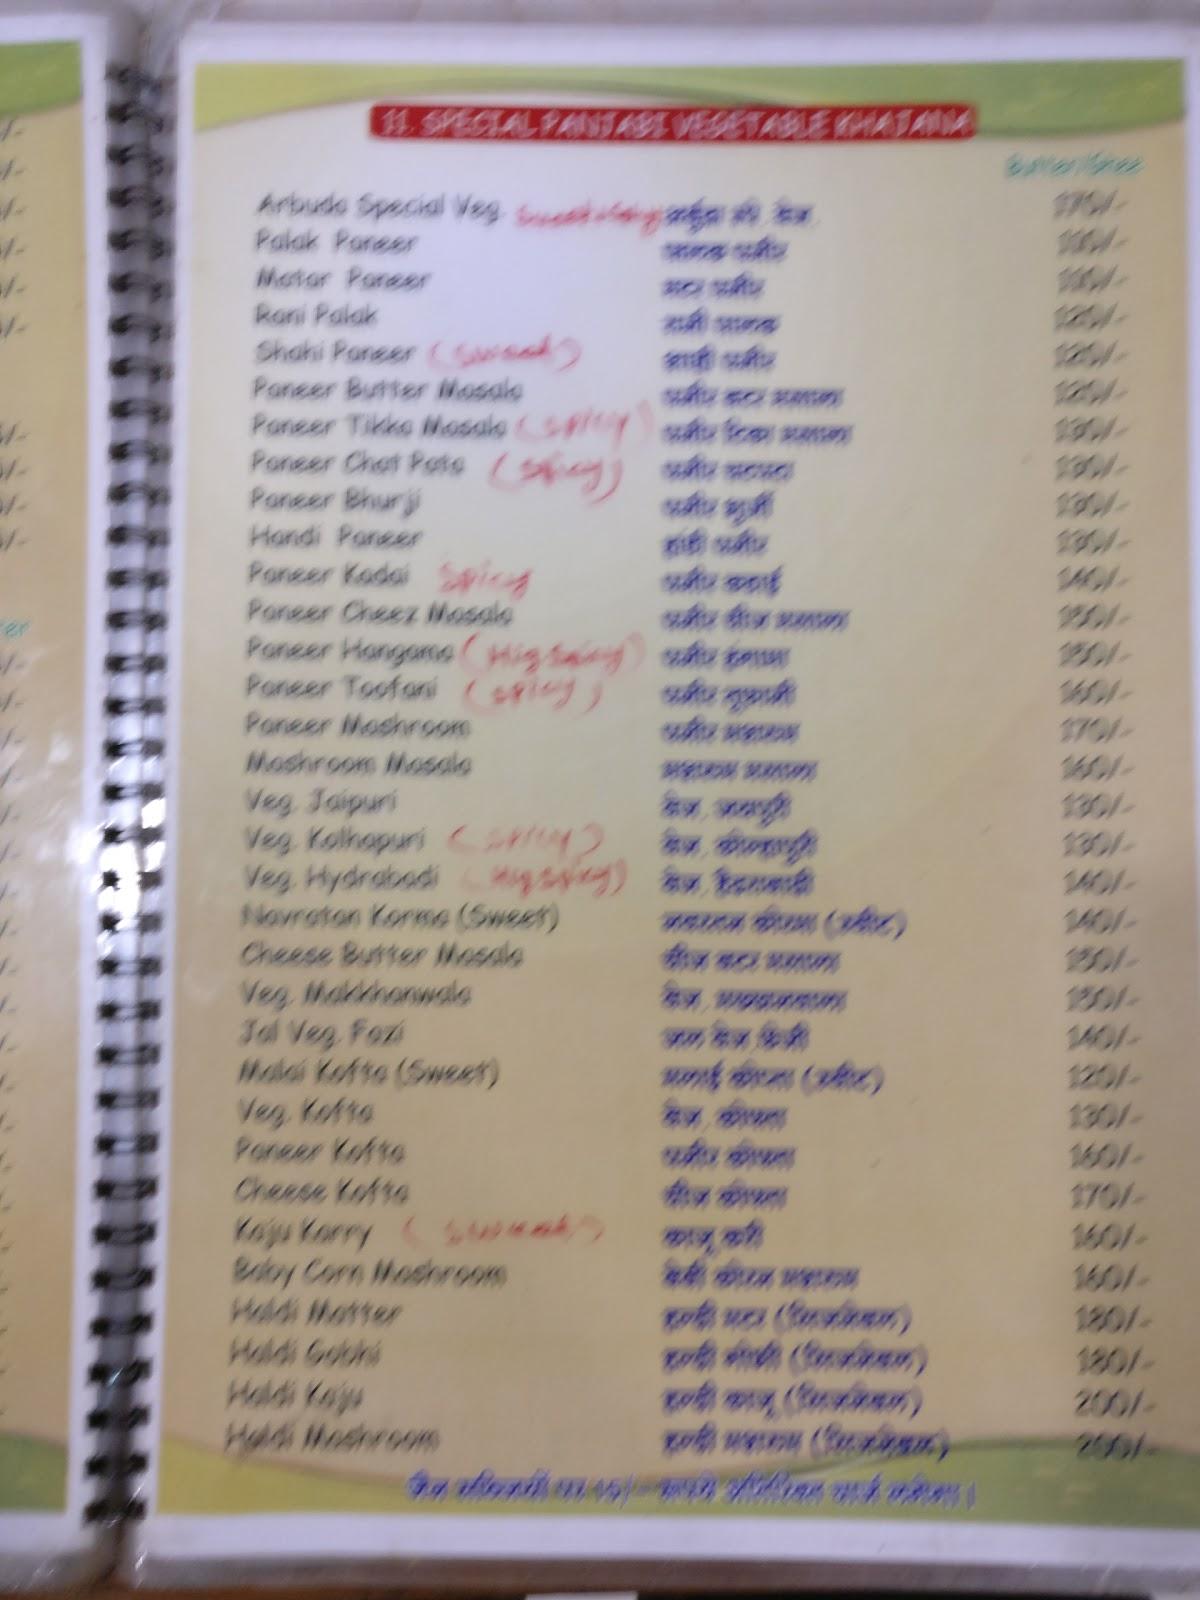 11. SPECIAL PANJABI VEGETABLE KHAJANA
Butter/Ghee
Arbuda Special Veg. अर्बुदा स्पे. वेज. 170/-
Palak Paneer पालक पनीर
Matar Paneer मटर पनीर
Rani Palak रानी पालक 120/-
Shahi Paneer (Sweet) शाही पनीर 120/-
Paneer Butter Masala पनीर बटर मसाला 120/-
Paneer Tikka Masala (Spicy) पनीर टिका मसाला 130/-
Paneer Chat Pata (Spicy) पनीर चटपटा 130/-
Paneer Bhurji पनीर भुर्जी 130/-
Handi Paneer हांडी पनीर 130/-
Paneer Kadai Spicy पनीर कढाई 140/-
Paneer Cheez Masala पनीर चीज मसाला 150/-
Paneer Hangama (Hig Spicy) पनीर हंगामा 150/-
Paneer Toofani (Spicy) पनीर तूफानी 160/-
Paneer Mashroom पनीर मशरूम 170/-
Mashroom Masala मशरूम मसाला 160/-
Veg. Jaipuri वेज. जयपुरी 130/-
Veg. Kolhapuri (Spicy) वेज. कोल्हापुरी 130/-
Veg. Hydrabadi (Hig Spicy) वेज. हैदराबादी 140/-
Navratan Korma (Sweet) नवरतन कोरमा (स्वीट) 140/-
Cheese Butter Masala चीज बटर मसाला 150/-
Veg. Makkhanwala वेज. मख्खनवाला 150/-
Jal Veg. Fazi जल वेज. फ्रेजी 140/-
Malai Kofta (Sweet) मलाई कोफ्ता (स्वीट) 120/-
Veg. Kofta वेज. कोफ्ता 130/-
Paneer Kofta पनीर कोफ्ता 160/-
Cheese Kofta चीज कोफ्ता 170/-
Kaju Karry (Sweet) काजू करी 160/-
Baby Corn Mashroom बेबी कोरन मशरूम 160/-
Haldi Matter हल्दी मटर 180/-
Haldi Gobhi हल्दी गोभी 180/-
Haldi Kaju हल्दी काजू 200/-
Haldi Mashroom हल्दी मशरूम 200/-